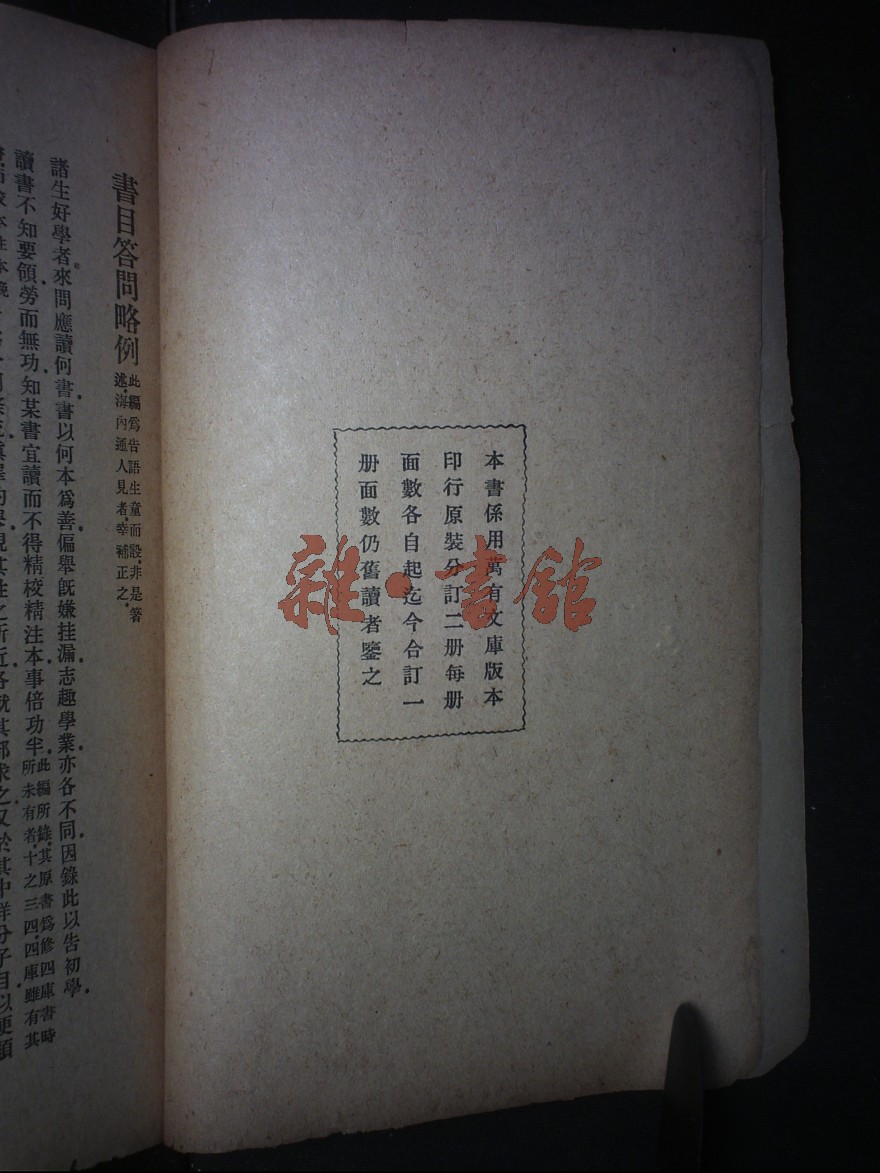 本書係用萬有文庫版本
印行原裝分訂二册每册
面數各自起迄今合訂一
册面數仍舊讀者鑒之
雜·書館
書目答問略例
此編爲告語生童而設，非是著
述，海內通人見者，幸補正之。
諸生好學者來問應讀何書書以何本爲善偏舉旣嫌挂漏志趣學業亦各不同因錄此以告初學
讀書不知要領勞而無功知某書宜讀而不得精校精注本事倍功半
此編所錄，其原書爲修四庫書時
所未有者，十之三四，四庫雖有其